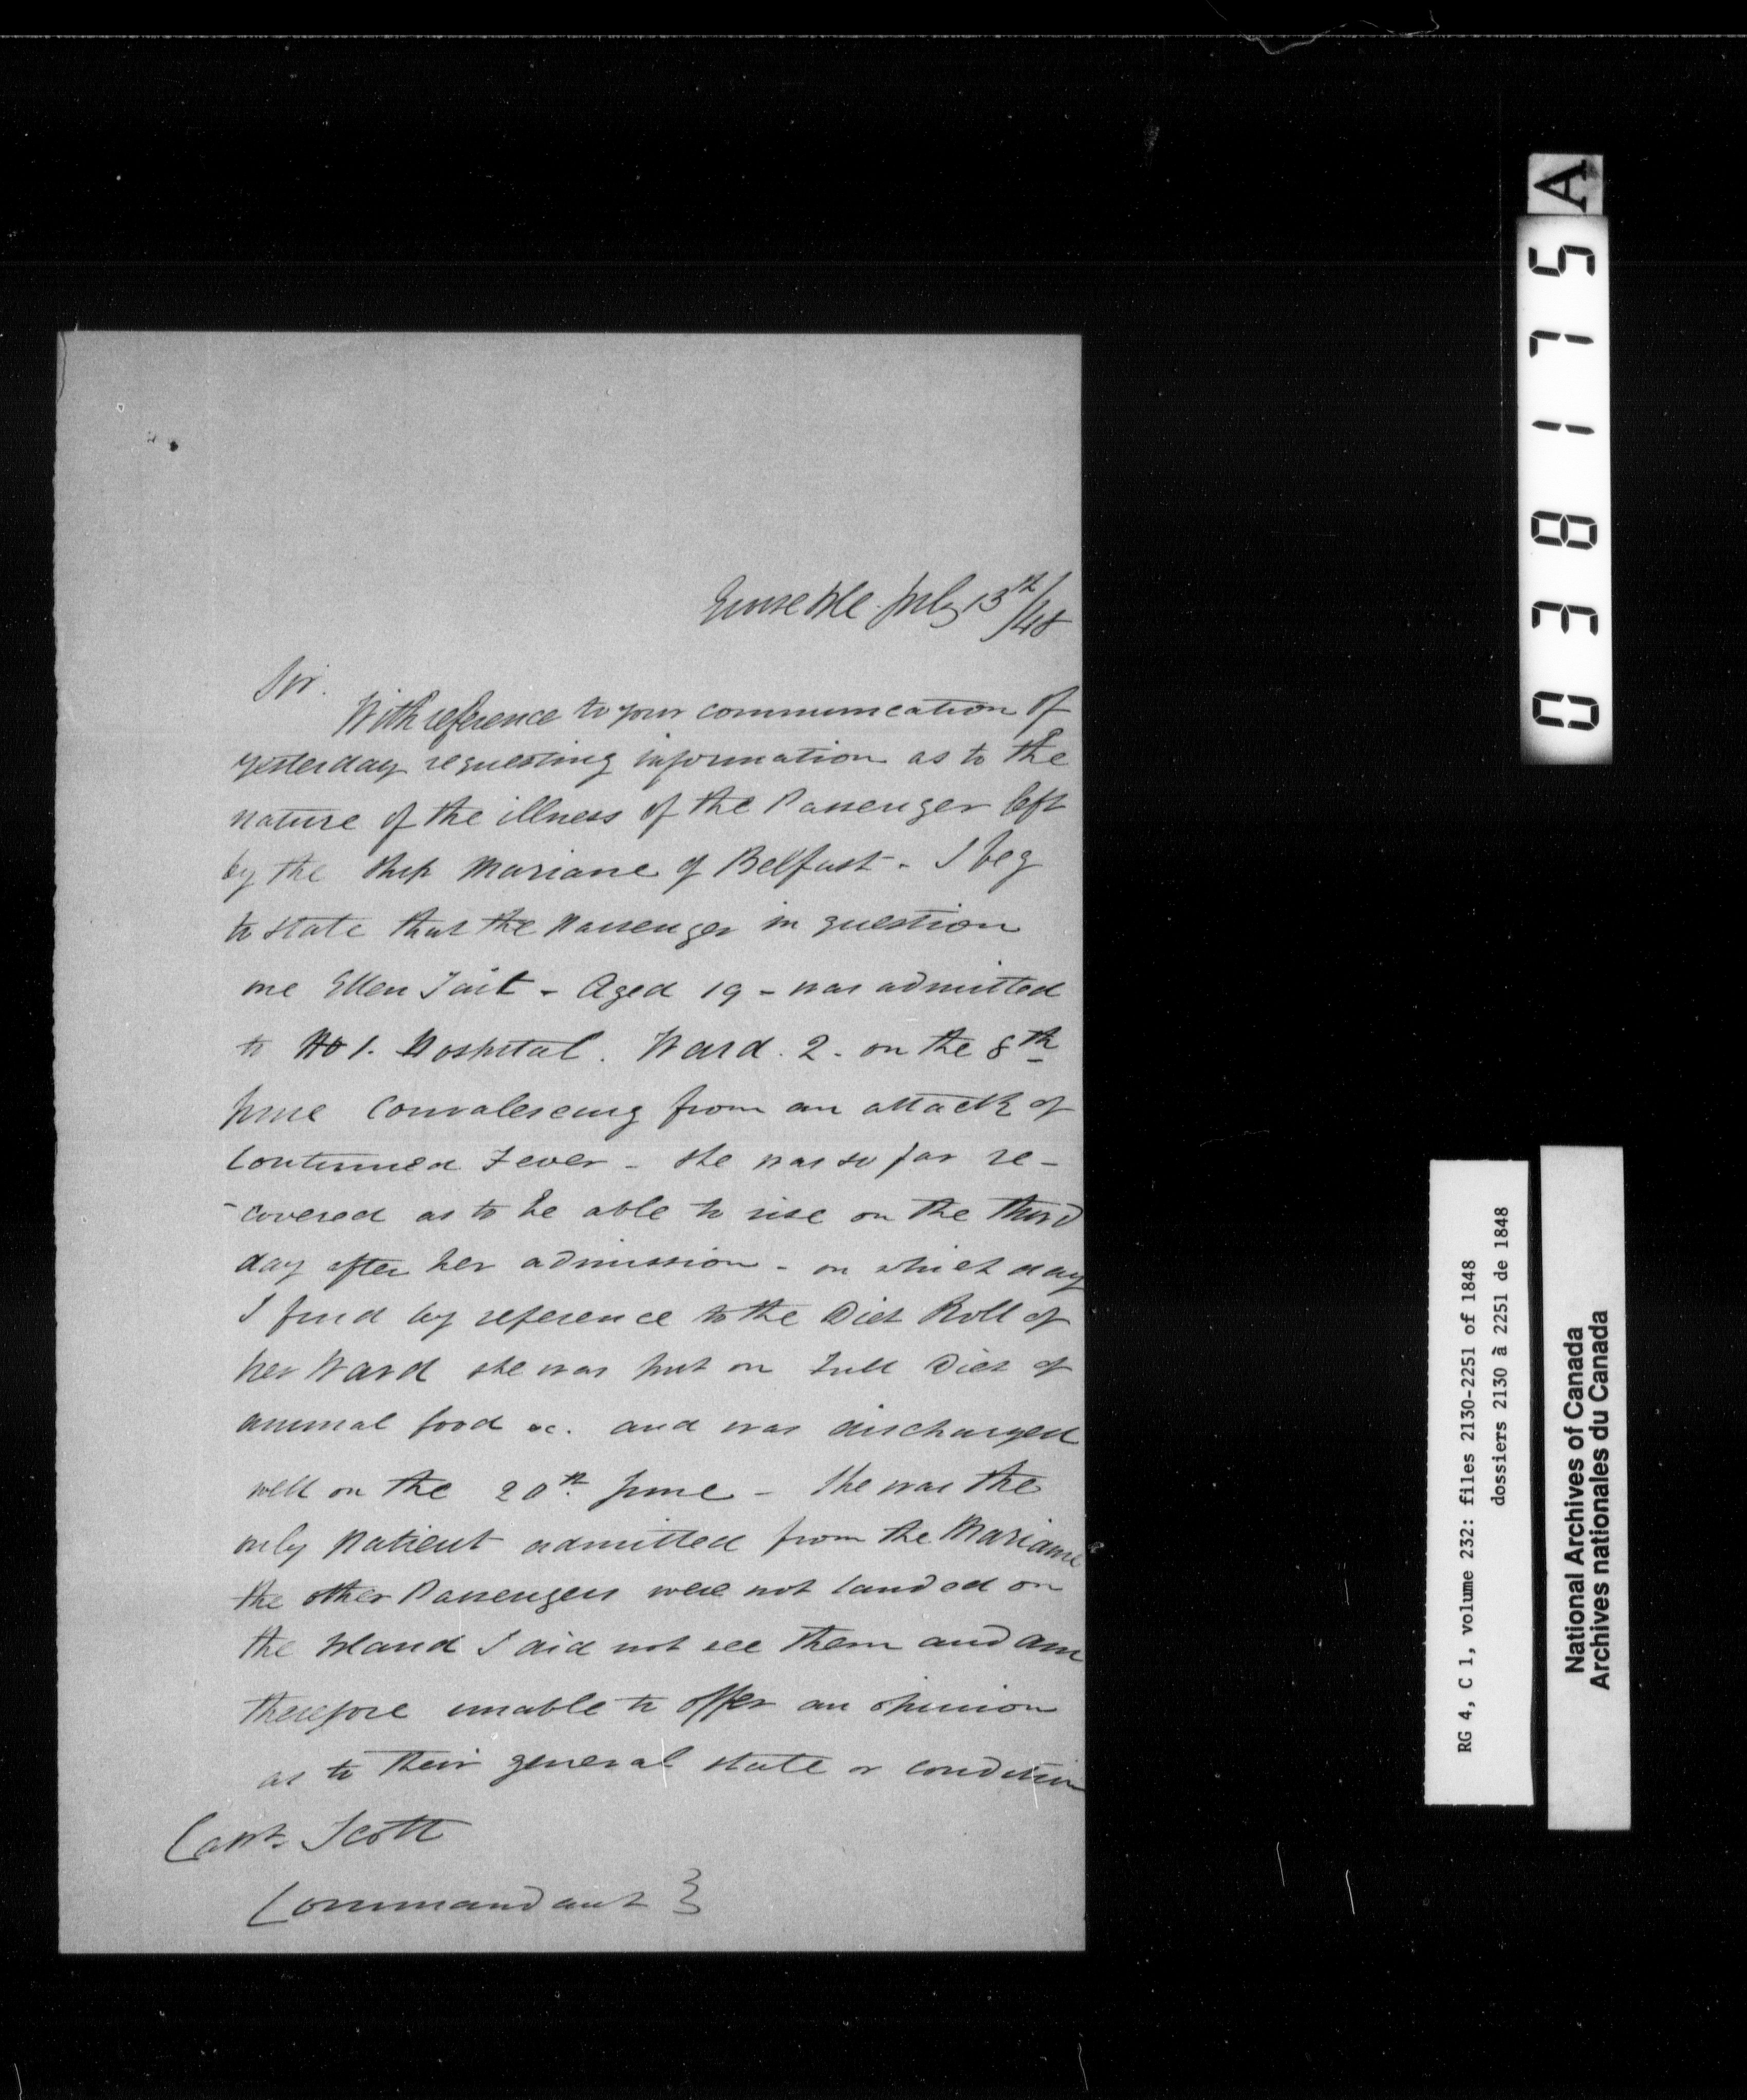 Grosse Isle July 13th/48
Sir.
With reference to your communication of
yesterday requesting information as to the
nature of the illness of the Passenger left
by the Ship Mariane of Belfast - I beg
to state that the Passenger in question
one Ellen Tait - Aged 19 - was admitted
to No 1. Hospital. Ward. 2. on the 8th
June Convalescing from an attack of
Continued Fever - She was so far re-
-covered as to be able to rise on the third
day after her admission - on which day
I find by reference to the Diet Roll of
her Ward she was put on Full Diet of
animal food &c. and was discharged
well on the 20th June - She was the
only Patient admitted from the Mariane
the other Passengers were not landed on
the Island I did not see them and am
therefore unable to offer an opinion
as to their general state or condition
Capt. Scott
Commandant }
A
0381175
RG 4, C 1, volume 232: files 2130-2251 of 1848
dossiers 2130 à 2251 de 1848
National Archives of Canada
Archives nationales du Canada